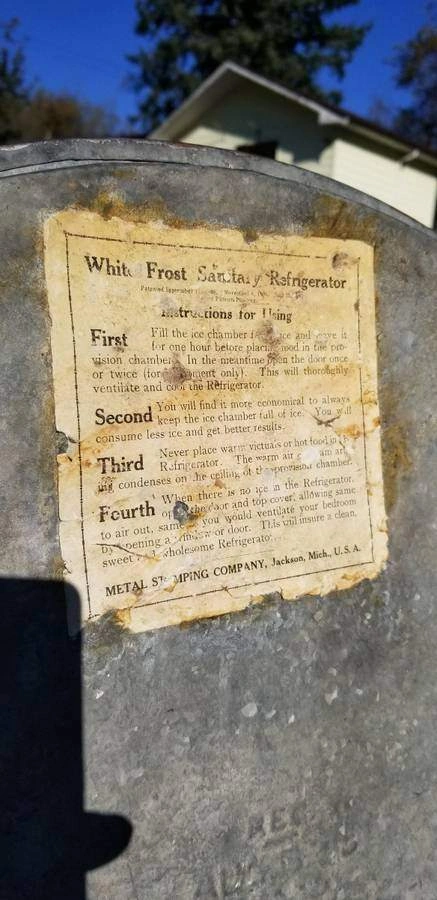 White Frost Sanitary Refrigerator
Patented September
Patents
Instructions for Using
First Fill the ice chamber ice and leave it
for one hour before placing food in the pro-
vision chamber. In the meantime open the door once
or twice (for moment only). This will thoroughly
ventilate and cool the Refrigerator.
Second You will find it more economical to always
keep the ice chamber full of ice. You will
consume less ice and get better results.
Third Never place warm victuals or hot food in
Refrigerator. The warm air
condenses on the ceiling of the provision chamber.
Fourth When there is no ice in the Refrigerator,
the door and top cover, allowing same
to air out, same you would ventilate your bedroom
by opening a window or door. This will insure a clean,
sweet and wholesome Refrigerator.
METAL STAMPING COMPANY, Jackson, Mich., U. S. A.